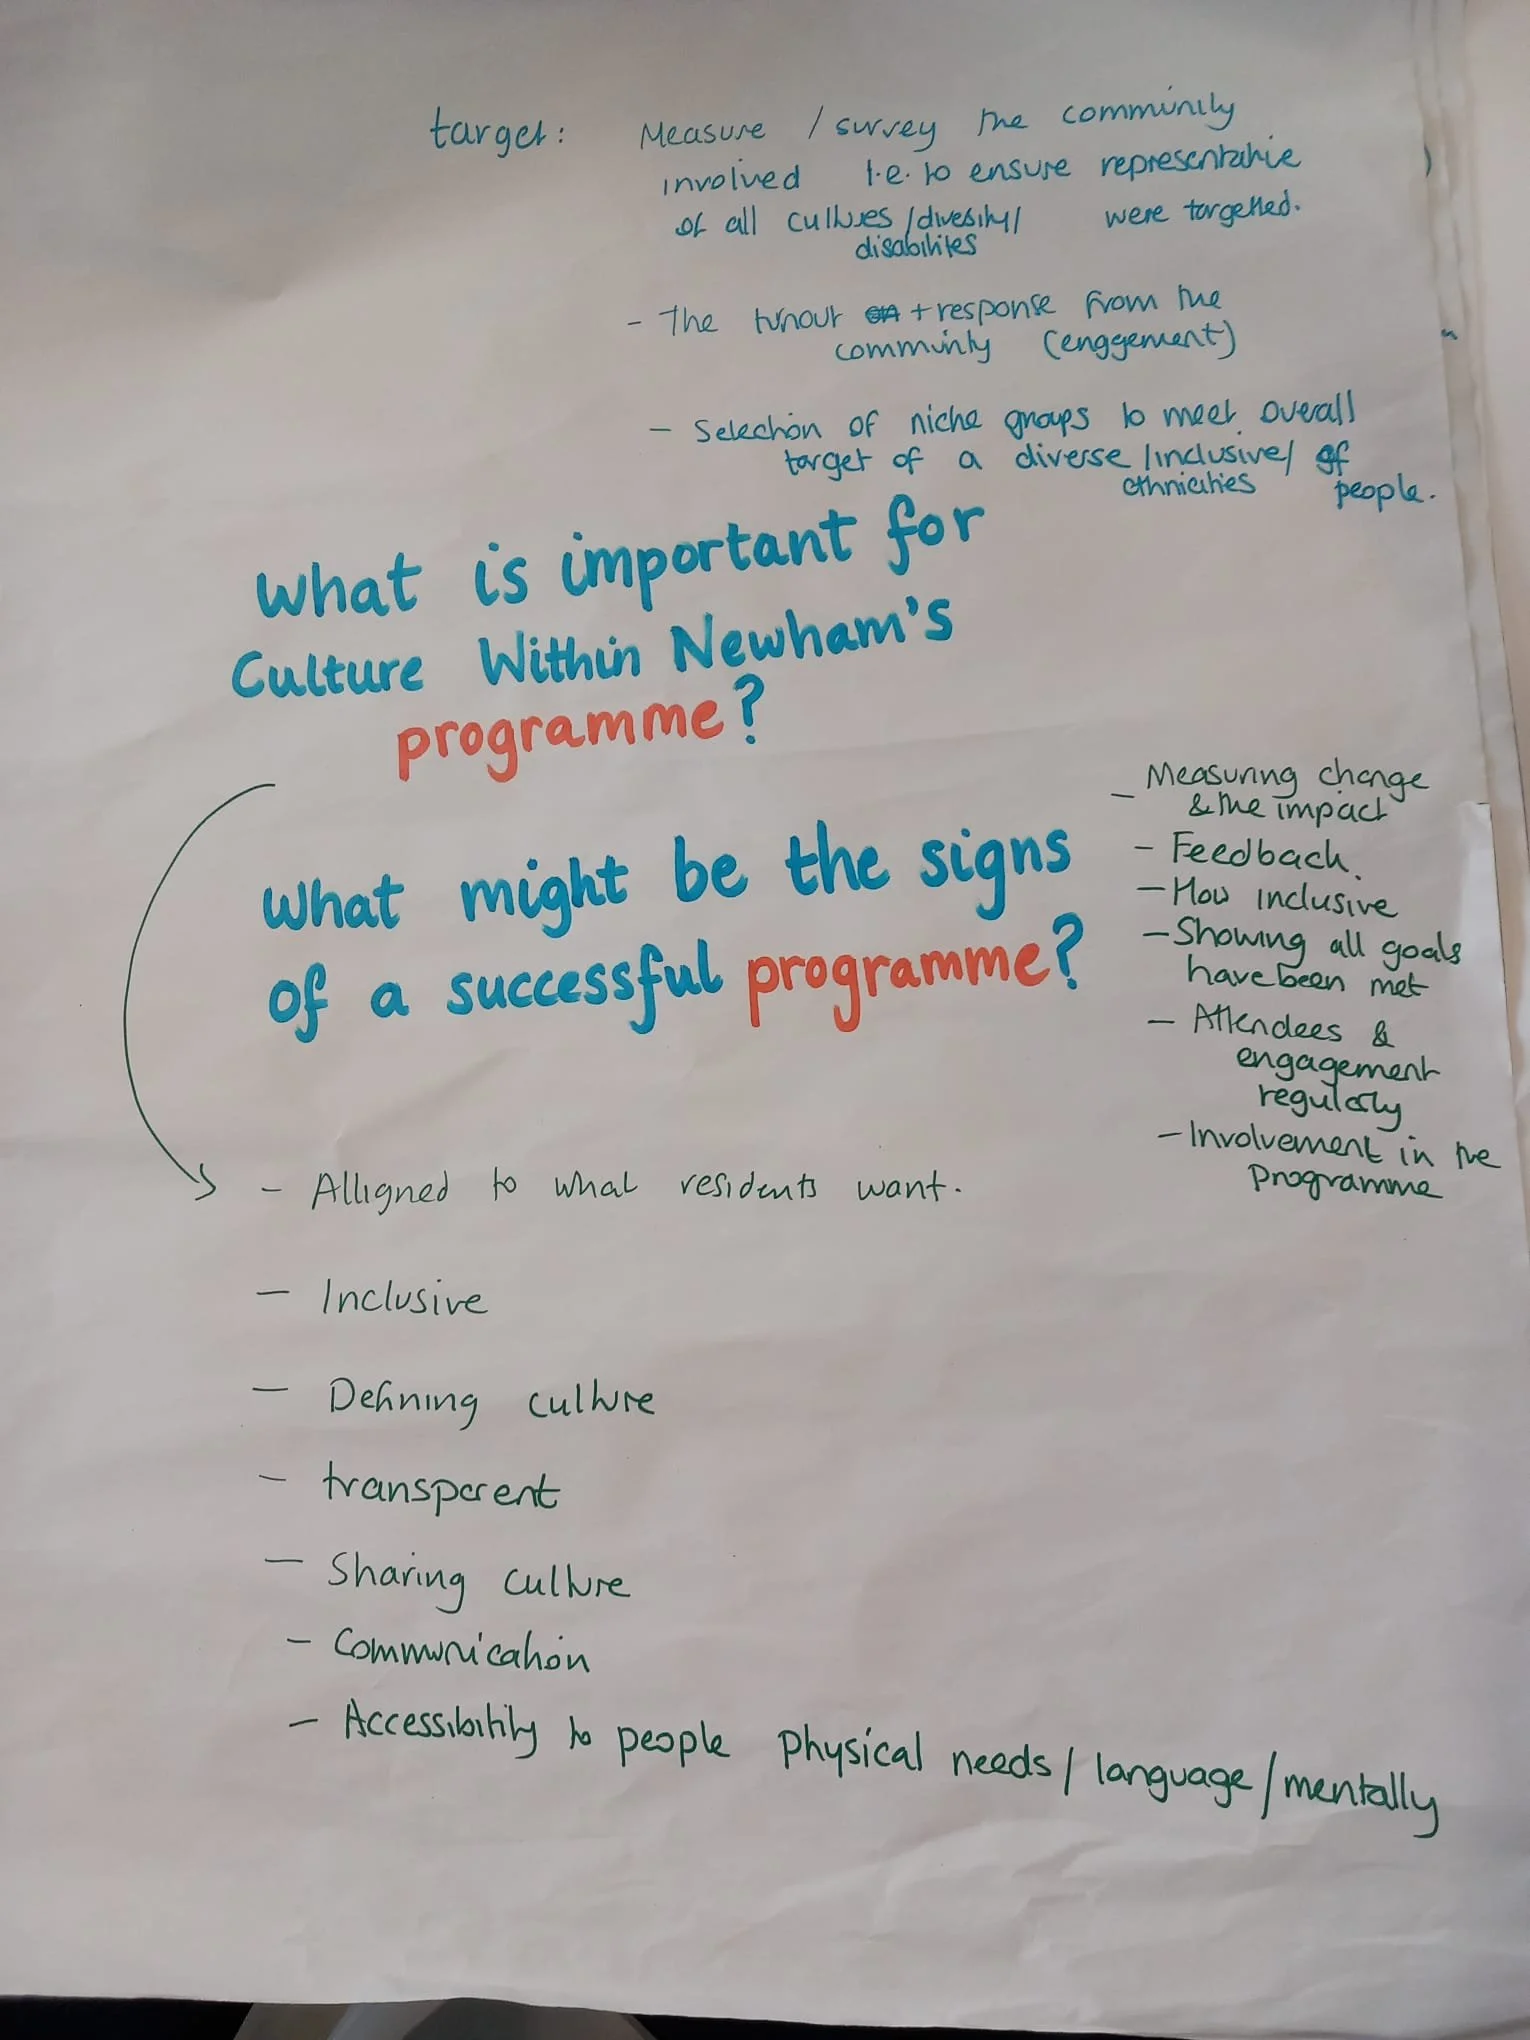 target: Measure / survey the community
involved i.e. to ensure representative
of all cultures / diversity / were targetted.
disabilites
- The turnout + response from the
community (enggement)
- Selection of niche groups to meet overall
target of a diverse / inclusive / of
ethnicities people.
What is important for
Culture Within Newham's
programme?
What might be the signs
of a successful programme?
- Measuring change
& the impact
- Feedback.
- How inclusive
- Showing all goals
have been met
- Attendees &
engagement
regularly
- Involvement in the
Programme
- Alligned to what residents want.
- Inclusive
- Defining culture
- transparent
- Sharing culture
- Communication
- Accessibility to people physical needs / language / mentally